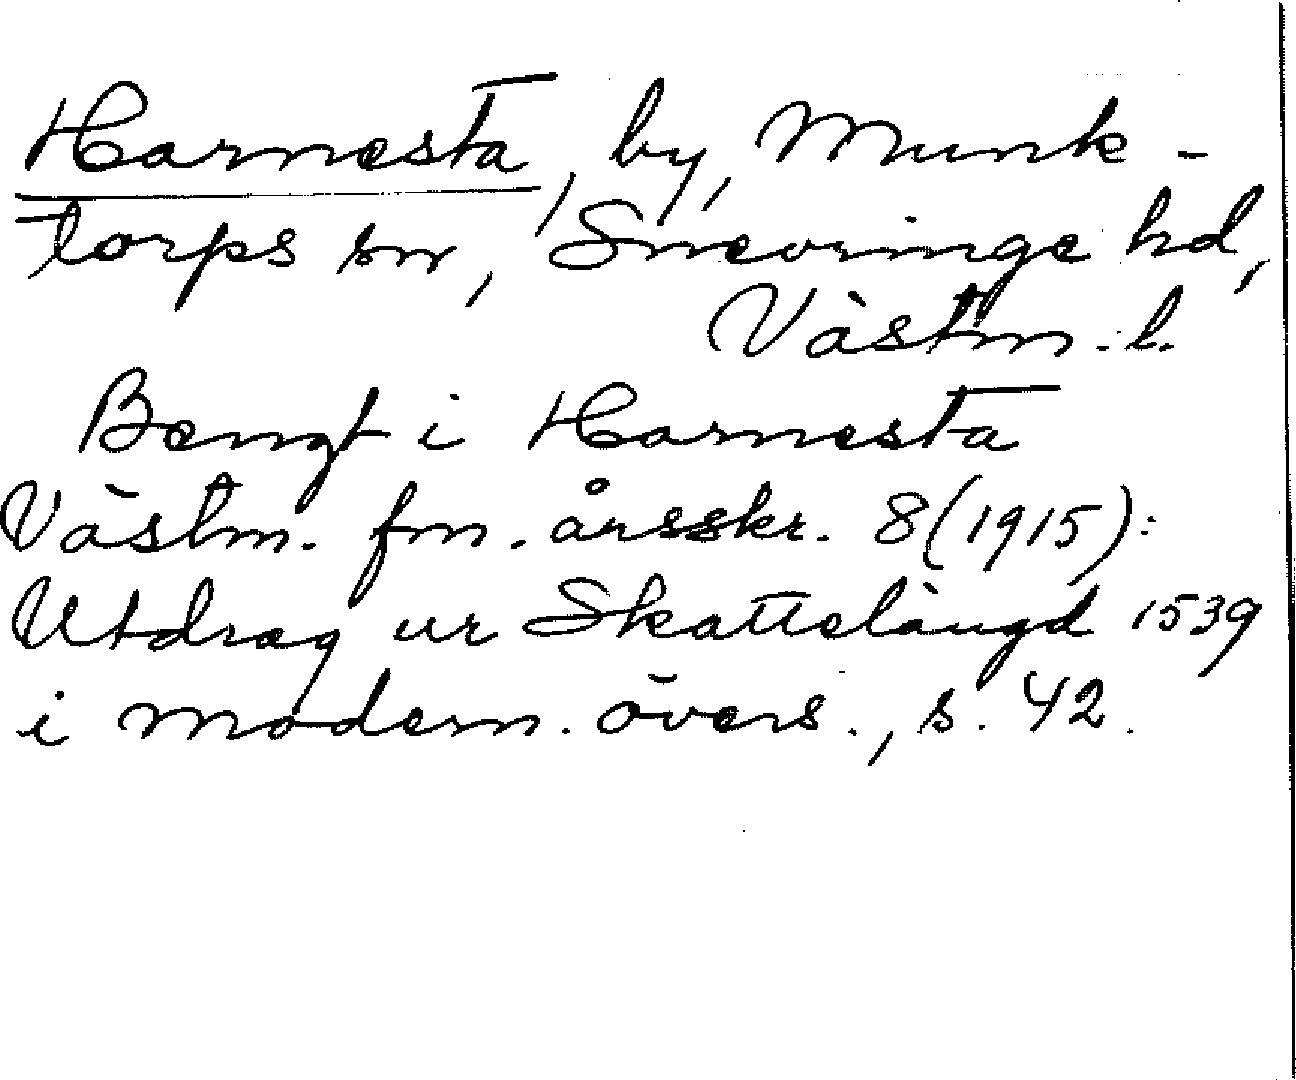 Harnesta, by, Munk-
torps sn, Snevringe hd,
Västm. l.
Bengt i Harnesta
Västm. fm. årsskr. 8(1915):
Utdrag ur Skattelängd 1539
i modern. övers., s. 42.